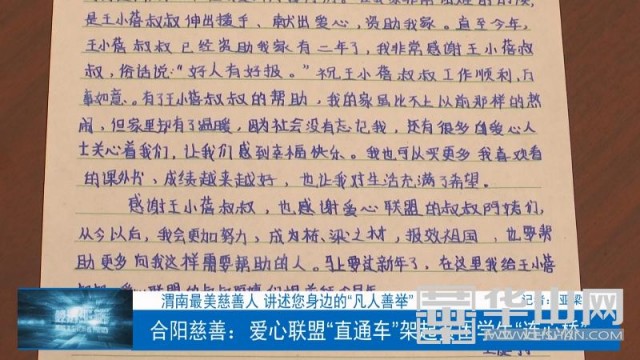 是王小蓓叔叔伸出援手、献出爱心,资助我家。直至今年,
王小蓓叔叔已经资助我家有二年了,我非常感谢王小蓓叔
叔,俗话说:“好人有好报。”祝王小蓓叔叔工作顺利,万
事如意。有了王小蓓叔叔的帮助,我的家虽比不上以前那样的热
闹,但家里却有了温暖,因为社会没有忘记我,还有很多的爱心人
士关心着我们,让我们感到幸福快乐。我也可以买更多我喜欢看
的课外书,成绩越来越好,也让我对生活充满了希望。
感谢王小蓓叔叔,也感谢爱心联盟的叔叔阿姨们,
从今以后,我会更加努力,成为栋梁之材,报效祖国,也要帮
助更多向我这样需要帮助的人。马上要过新年了,在这里我给王小蓓
渭南最美慈善人 讲述您身边的“凡人善举”
记者:
合阳慈善:爱心联盟“直通车”架起 学生“连心桥”
华山网